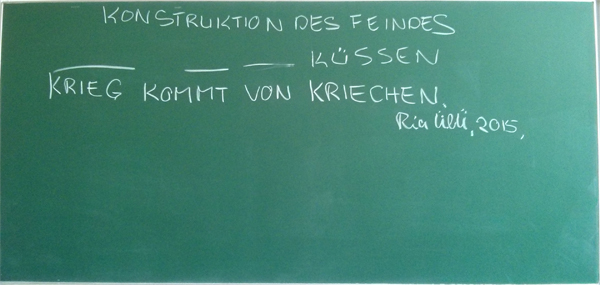 KONSTRUKTION DES FEINDES
KÜSSEN
KRIEG KOMMT VON KRIECHEN.
Ria 2015,